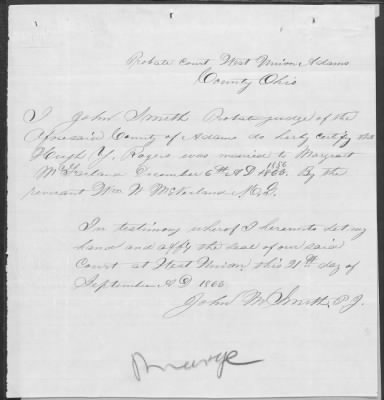 Probate Court West Union Adams
County Ohio
I John Smith Probate judge of the
Aforesaid County of Adams do herby certify that
Hugh Y. Rogers was married to Margaret
McFarland December 6th A.D. 1860. By the
1856
reverant Wm W McFarland
In testimony wherof I hereunto set my
hand and affix the seal of our said
Court at West Union, this 21st day of
September AD 1866
John M Smith, P. J.